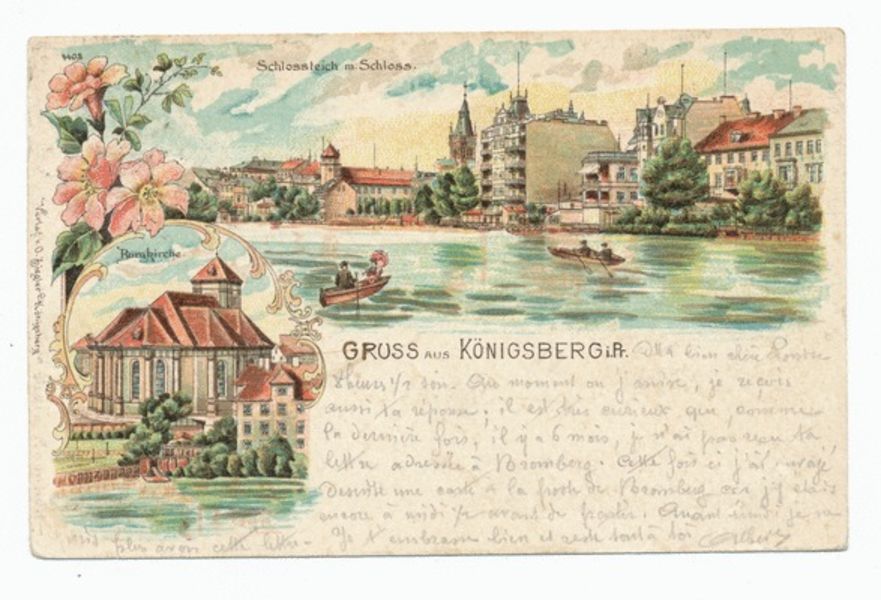 9408
Schlossteich m. Schloss.
Burgkirche.
GRUSS AUS KÖNIGSBERG i. Pr.
Ma bien chère
8 heures 1/2 soir. Au moment où j'arrive, je reçois
aussi ta réponse; il est très curieux que, comme
la dernière fois, il y a 6 mois, je n'ai pas reçu ta
lettre adressée à Bromberg. Cette fois ci j'ai
une carte à la poste de Bromberg car j'y étais
encore à midi 1/2 avant de. Quant
Je t'embrasse bien et reste tout à toi Albert
plus avoir cette lettre.
Verlag v. O. Ziegler Königsberg